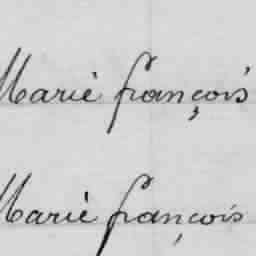 Marie françois
Marie françois